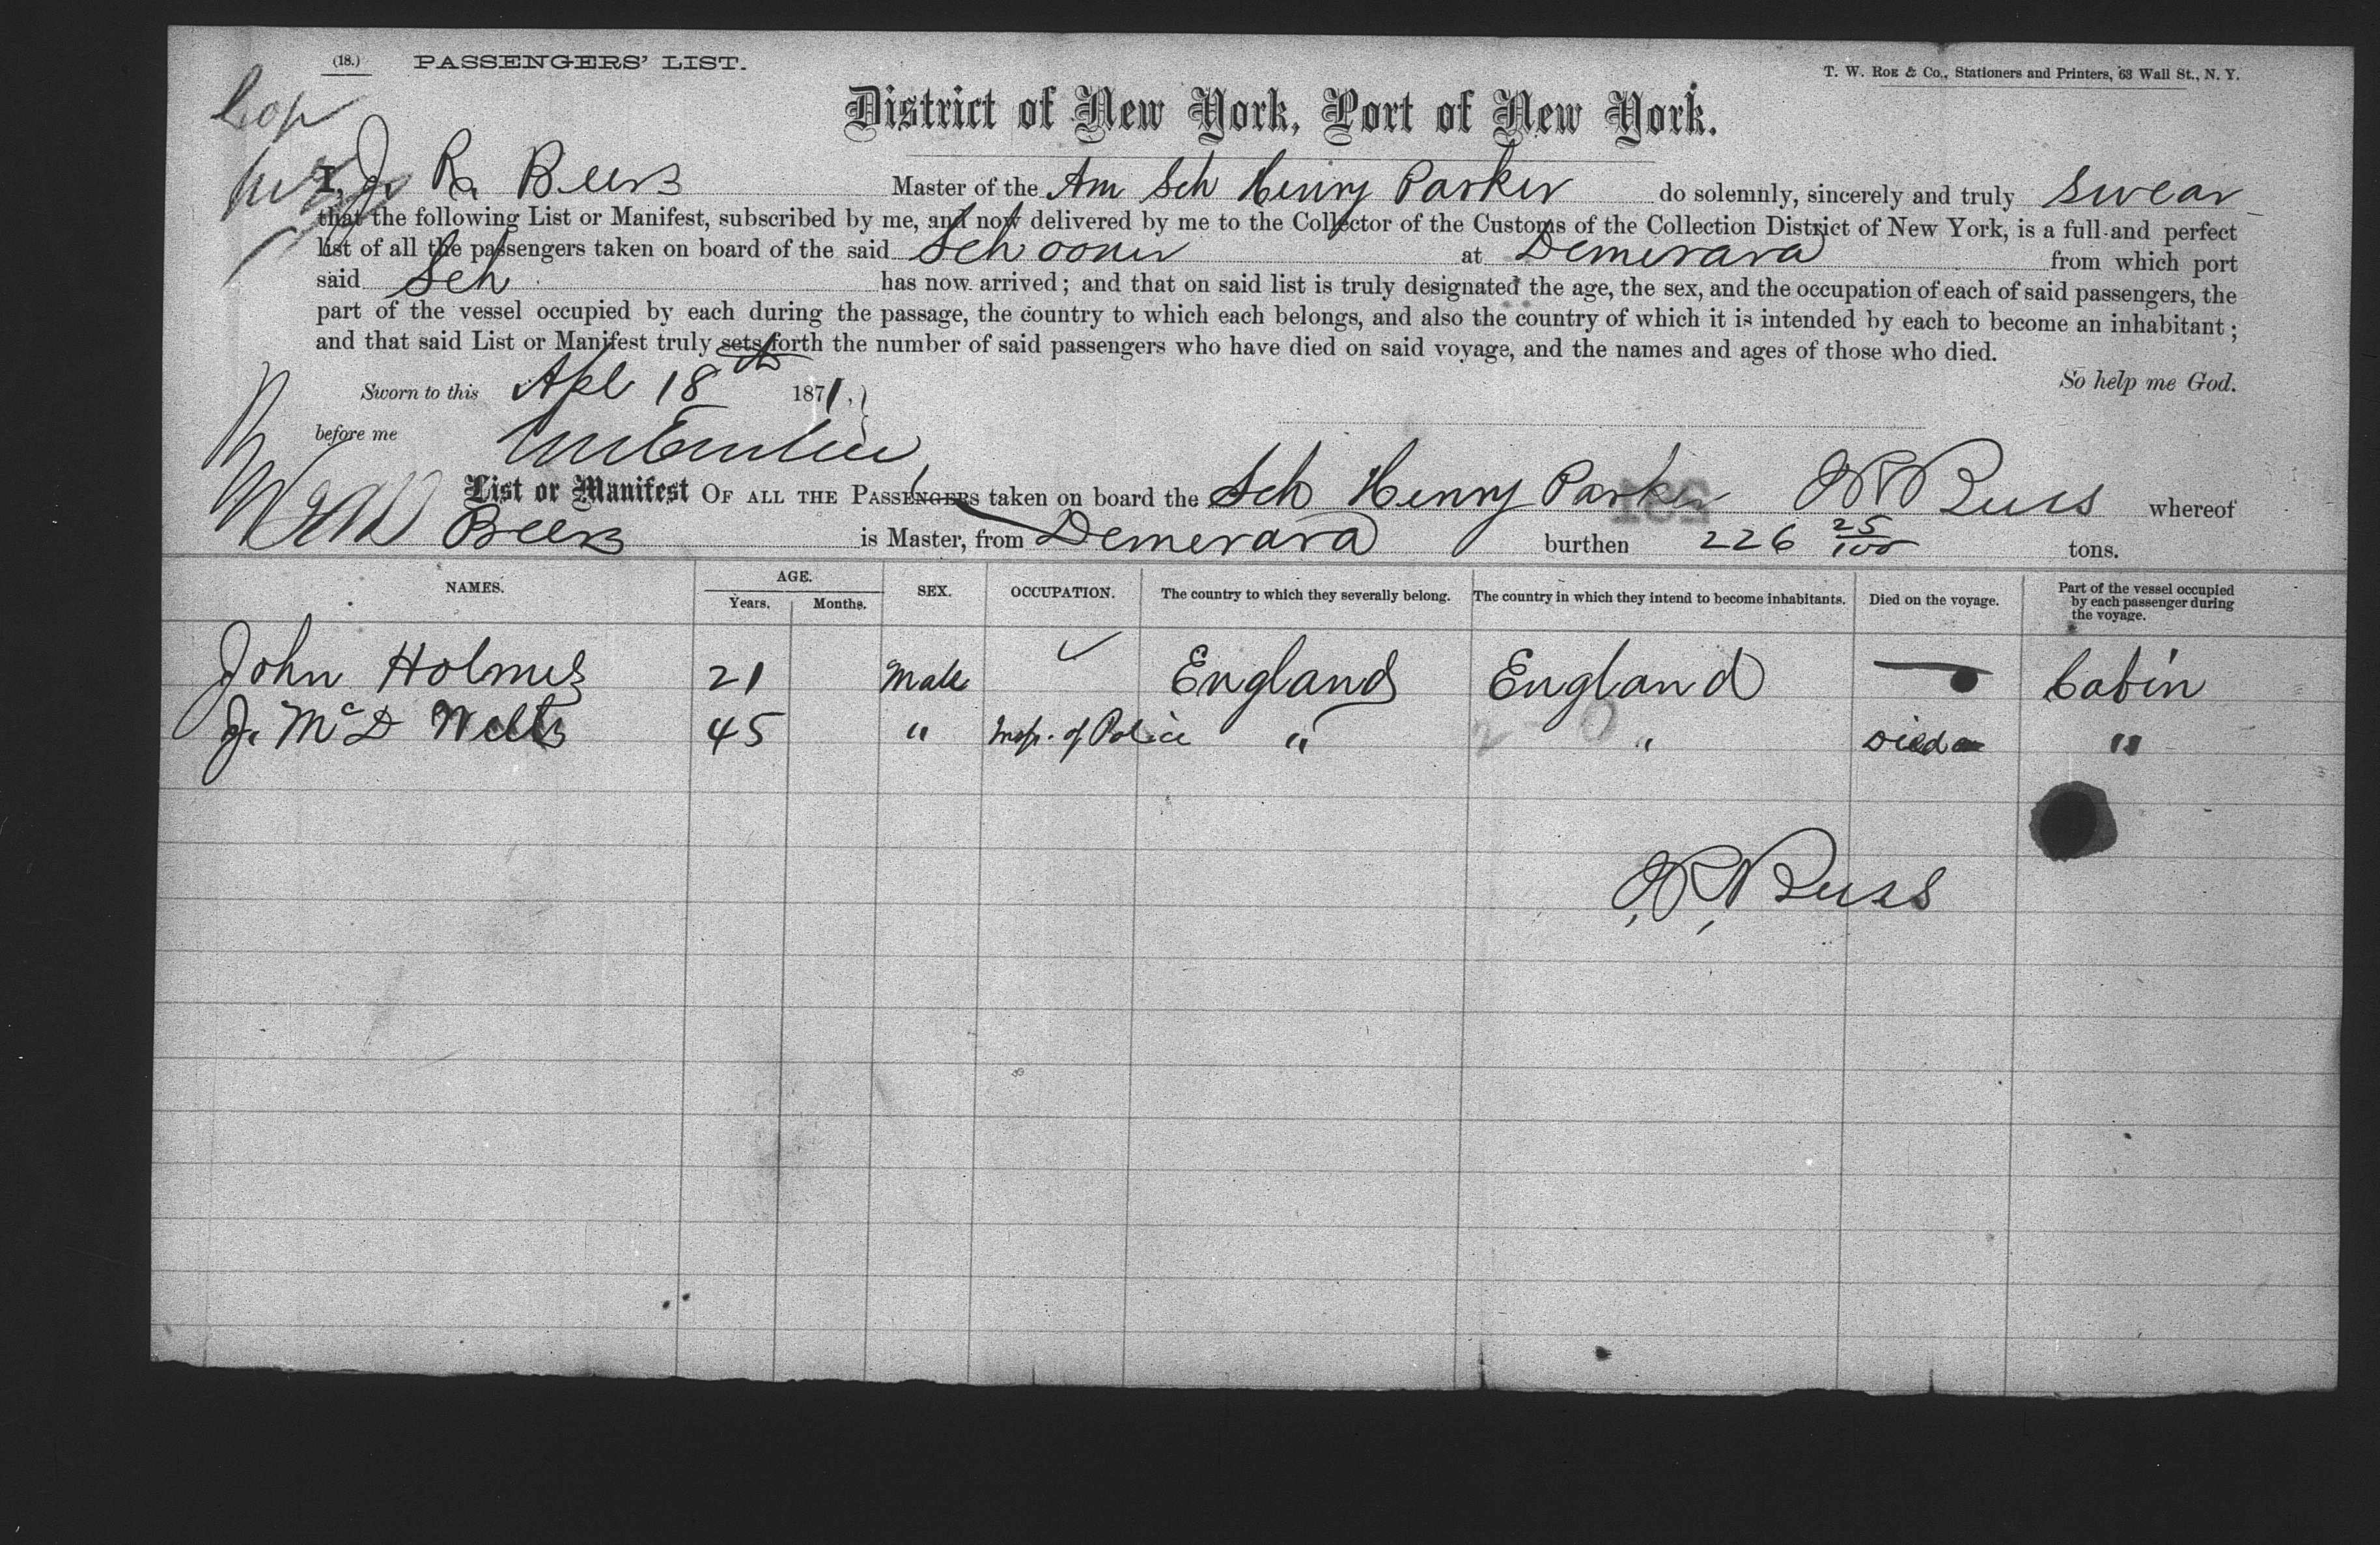 (18.) PASSENGERS' LIST.
T. W. ROE & Co., Stationers and Printers, 63 Wall St., N. Y.
Cop
District of New York, Port of New York.
I, J. R. Beers Master of the Am Sch Henry Parker do solemnly, sincerely and truly swear
that the following List or Manifest, subscribed by me, and now delivered by me to the Collector of the Customs of the Collection District of New York, is a full and perfect
list of all the passengers taken on board of the said Schooner at Demerara from which port
said Sch has now arrived; and that on said list is truly designated the age, the sex, and the occupation of each of said passengers, the
part of the vessel occupied by each during the passage, the country to which each belongs, and also the country of which it is intended by each to become an inhabitant;
and that said List or Manifest truly sets forth the number of said passengers who have died on said voyage, and the names and ages of those who died.
So help me God.
Sworn to this Apl 18th 1871,
before me
List or Manifest OF ALL THE PASSENGERS taken on board the Sch Henry Parker whereof
Beers is Master, from Demerara burthen 226 25/100 tons.
NAMES. AGE. Years. Months. SEX. OCCUPATION. The country to which they severally belong. The country in which they intend to become inhabitants. Died on the voyage. Part of the vessel occupied by each passenger during the voyage.
John Holmes 21 Male ✓ England England — Cabin
J. McD Welts 45 " Insp. of Police " " Died "